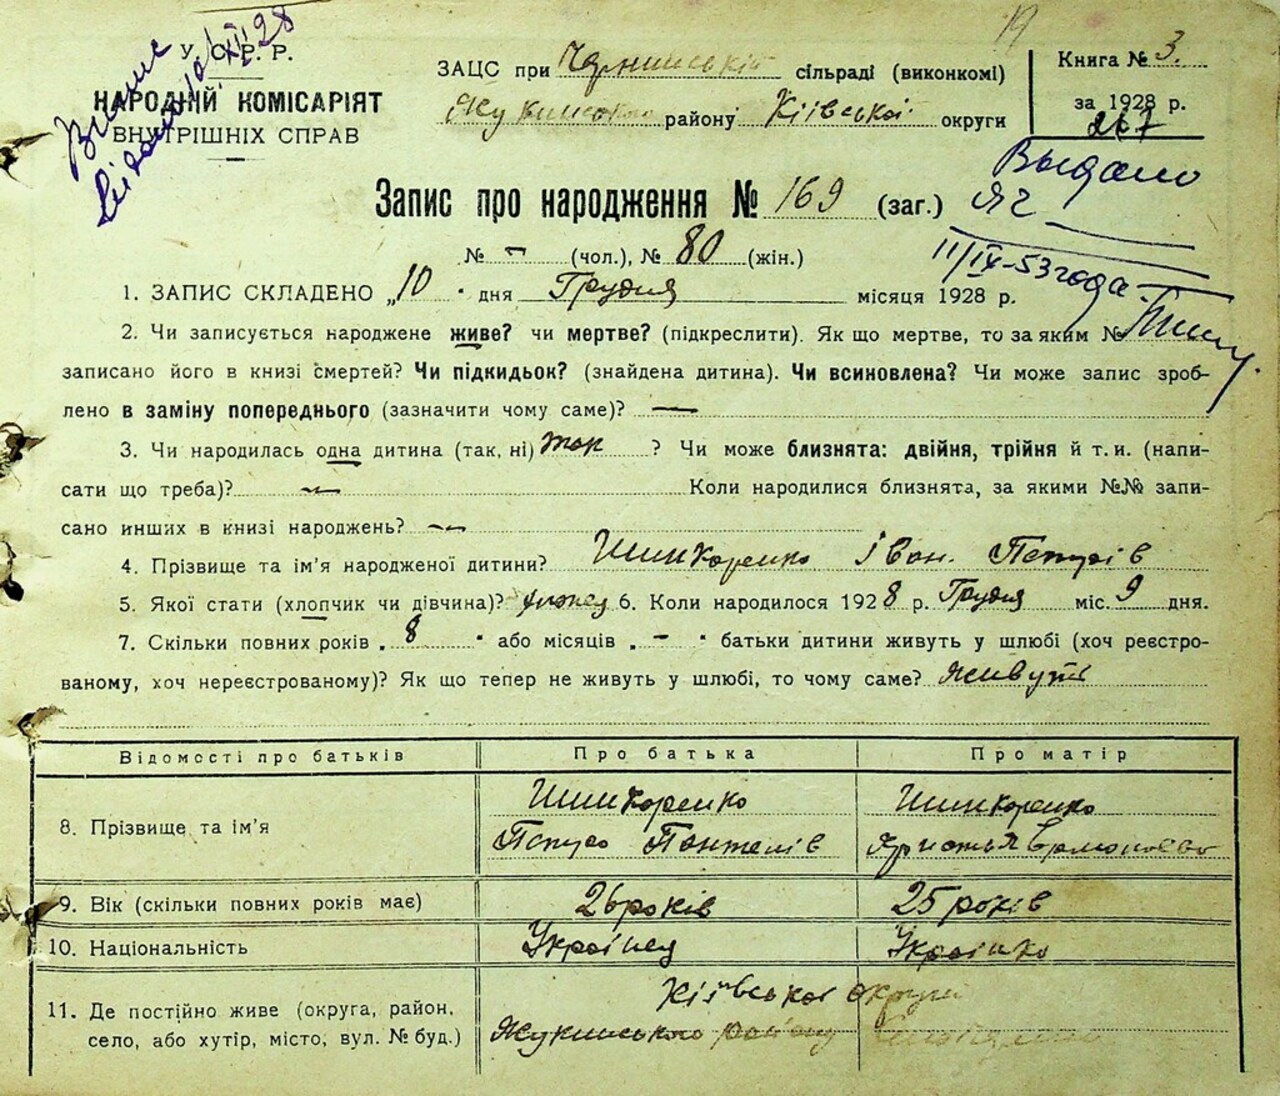 19
У. С. Р. Р.
НАРОДНІЙ КОМІСАРІЯТ
ВНУТРІШНІХ СПРАВ
10/XII 28
ЗАЦС при сільраді (виконкомі)
району Київської округи
Книга № 3.
за 1928 р.
267
Выдано
ЯЧ
11/IX-53 года.
Запис про народження № 169 (заг.)
№ – (чол.), № 80 (жін.)
1. ЗАПИС СКЛАДЕНО „10" дня Грудня місяця 1928 р.
2. Чи записується народжене живе? чи мертве? (підкреслити). Як що мертве, то за яким №
записано його в книзі смертей? Чи підкидьок? (знайдена дитина). Чи всиновлена? Чи може запис зроб-
лено в заміну попереднього (зазначити чому саме)? —
3. Чи народилась одна дитина (так, ні) так ? Чи може близнята: двійня, трійня й т. и. (напи-
сати що треба)? — Коли народилися близнята, за якими №№ запи-
сано инших в книзі народжень? —
4. Прізвище та ім'я народженої дитини? Шинкоренко Іван.
5. Якої стати (хлопчик чи дівчина)? 6. Коли народилося 1928 р. Грудня міс. 9 дня.
7. Скільки повних років „8" або місяців „–" батьки дитини живуть у шлюбі (хоч реєстро-
ваному, хоч нереєстрованому)? Як що тепер не живуть у шлюбі, то чому саме? живуть
Відомості про батьків Про батька Про матір
8. Прізвище та ім'я Шинкоренко Шинкоренко
9. Вік (скільки повних років має) 26 років 25 років
10. Національність Українец Українко
11. Де постійно живе (округа, район, Київської округи
село, або хутір, місто, вул. № буд.) району